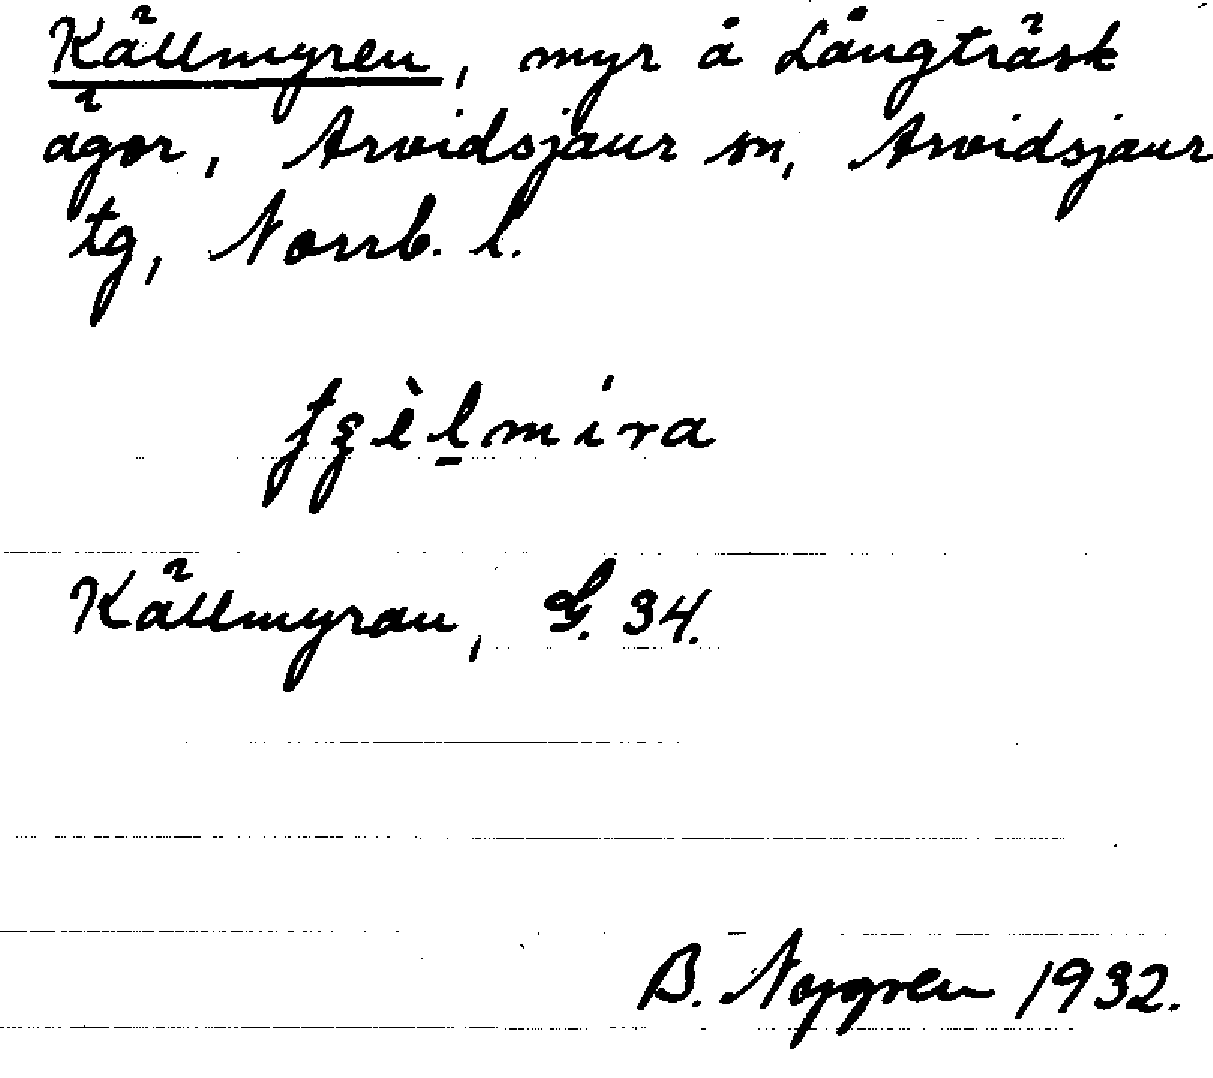 Källmyren, myr å Långträsk
ägor, Arvidsjaur sn, Arvidsjaur
tg, Norrb. l.
Källmyran, G. 34.
B. Nygren 1932.